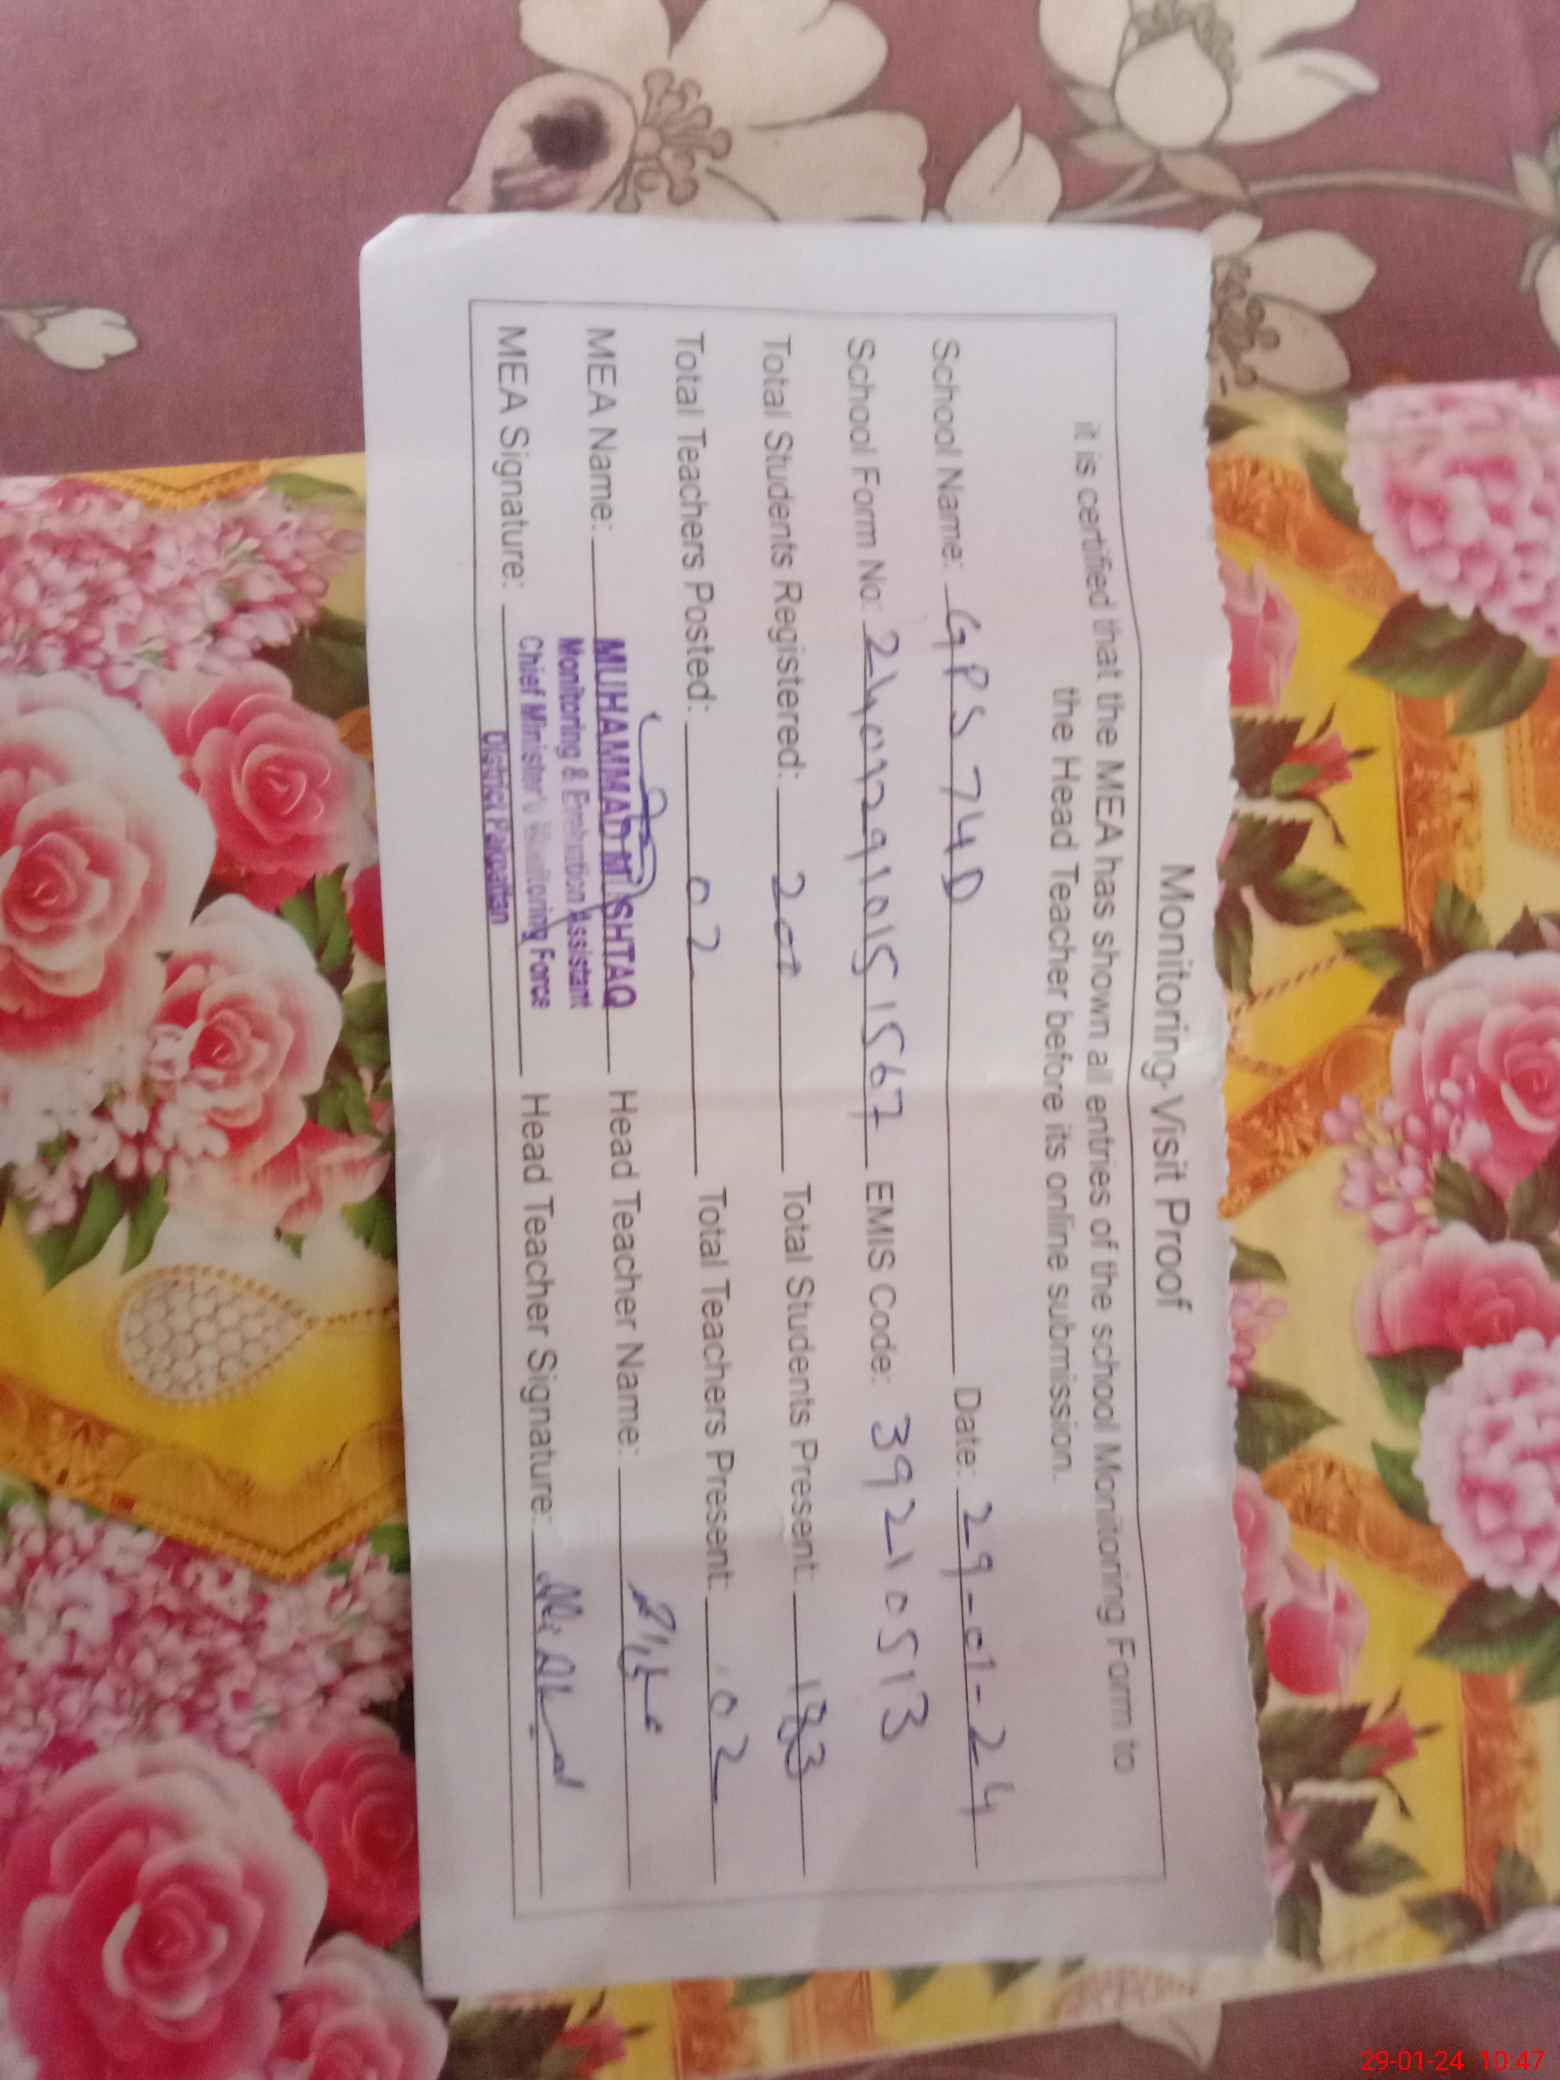 Monitoring Visit Proof
it is certified that the MEA has shown all entries of the school Monitoring Form to
the Head Teacher before its online submission.
School Name: GPS 74D Date: 29-01-24
School Form No: EMIS Code: 39210513
Total Students Registered: Total Students Present:
Total Teachers Posted: 02 Total Teachers Present: 02
MEA Name: MUHAMMAD MUSHTAQ Head Teacher Name:
Monitoring & Evaluation Assistant
Chief Minister's Monitoring Force
MEA Signature: Head Teacher Signature:
District Pakpattan
29-01-24 10:47